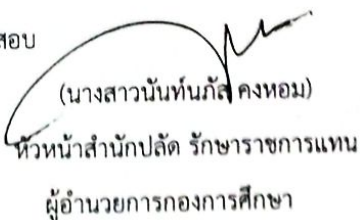 สอบ
(นางสาวนันท์นภัส คงหอม)
หัวหน้าสำนักปลัด รักษาราชการแทน
ผู้อำนวยการกองการศึกษา